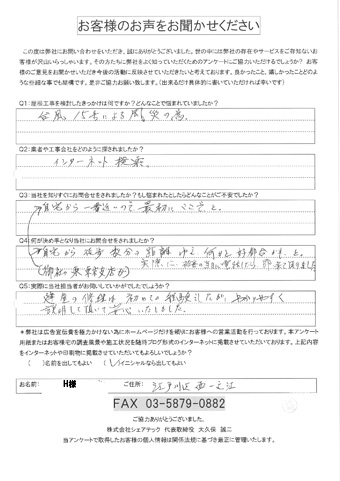 お客様のお声をお聞かせください
この度は弊社にお問い合わせをいただき、誠にありがとうございました。世の中には弊社の存在やサービスをご存知ないお
客様が沢山いらっしゃいます。その方たちに弊社をよく知っていただくためのアンケートにご協力いただけるでしょうか？お客
様のご意見をお聞かせいただき今後の活動に反映させていただきたいと考えております。良かったこと、嬉しかったことどのよ
うな些細な事でも結構です。是非ご協力お願い致します。（出来るだけ具体的に書いていただければ幸いです）
Q1:屋根工事を検討したきっかけは何ですか？どんなことで悩まれていましたか？
台風15号による風災の為。
Q2:業者や工事会社をどのように探されましたか？
インターネット検索。
Q3:当社を知りすぐにお問合せをされましたか？もし悩まれたとしたらどんなことがご不安でしたか？
自宅から一番近いので最初にここぞと。
Q4:何が決め手となり当社にお問合せをされましたか？
自宅から
何かと好都合かと。
Q5:実際に当社担当者がお伺いしていかがでしたでしょうか？
建屋の修理は初めての
説明して頂いて安心いたしました。
＊弊社は広告宣伝費を極力かけない為にホームページだけを頼りにお客様への営業活動を行っております。本アンケート
用紙またはお客様宅の調査風景や施工状況を随時ブログ形式のインターネットに掲載させていただいております。上記内容
をインターネットや印刷物に掲載させていただいてもよろしいでしょうか？
（　）名前を出してもよい　（✓）イニシャルなら出してもよい
お名前:　H様　ご住所:　江戸川区西一之江
FAX 03-5879-0882
ご協力ありがとうございました。
株式会社シェアテック 代表取締役 大久保 誠二
当アンケートで取得したお客様の個人情報は関係法規に基づき厳正に管理いたします。